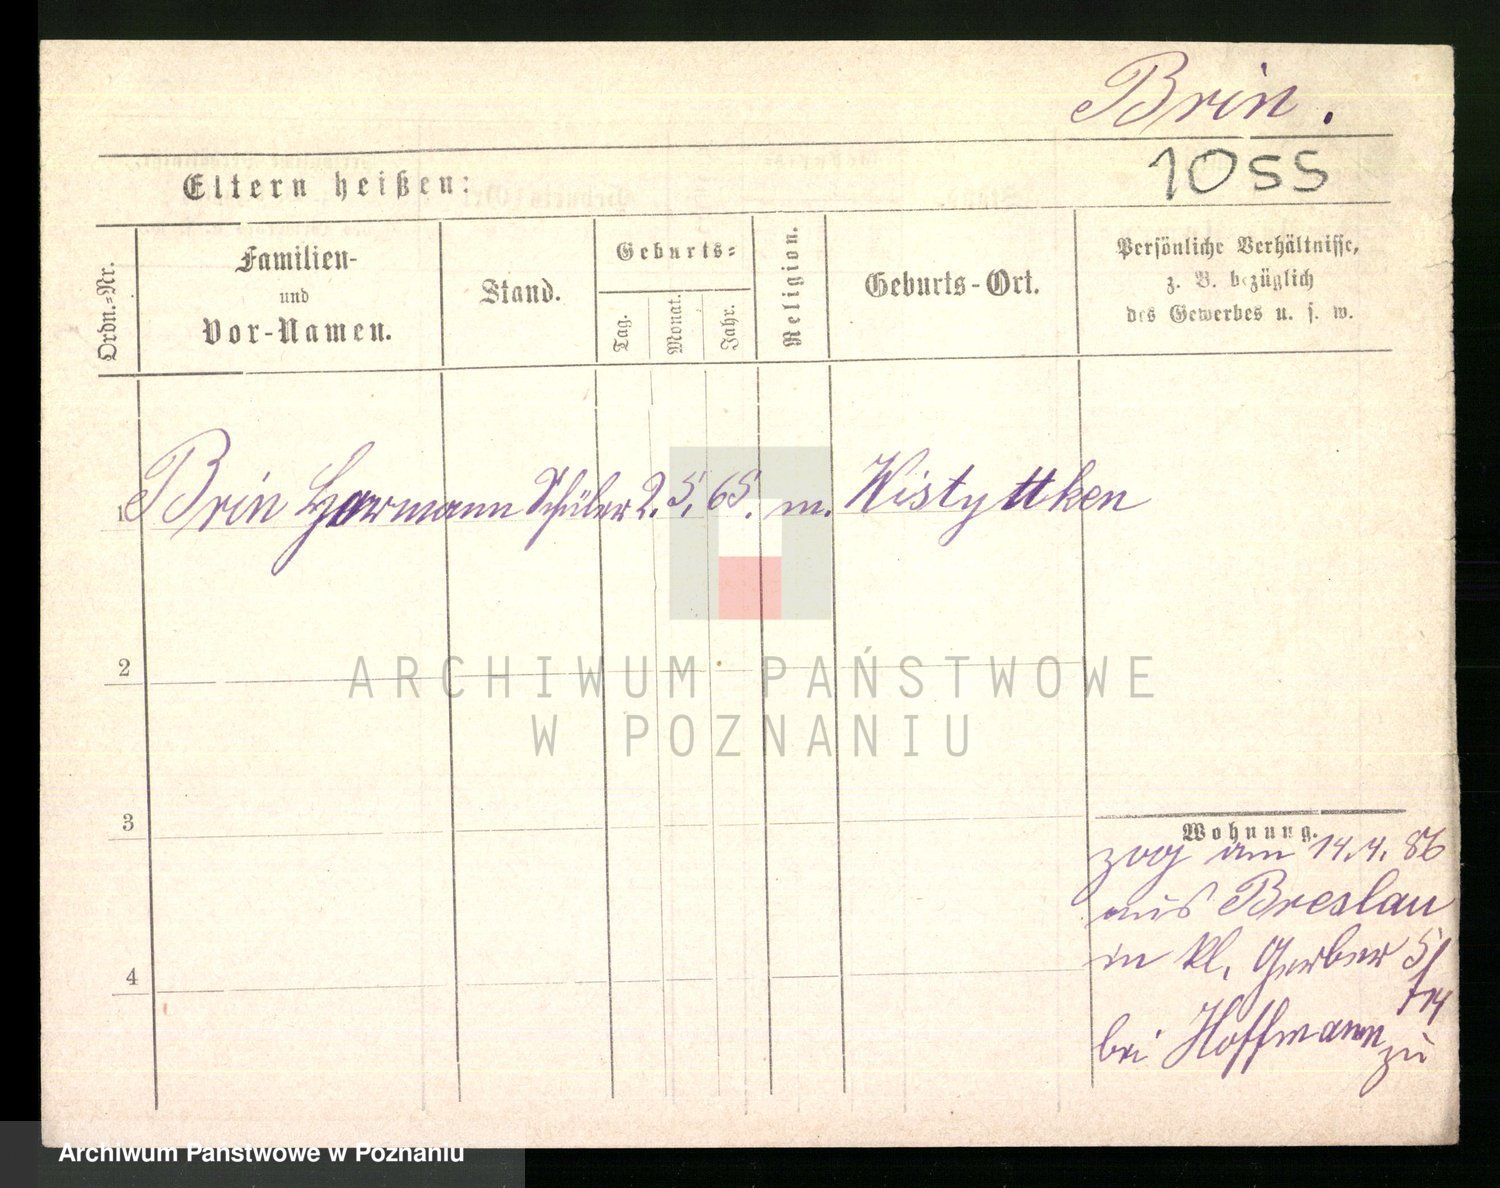 Brin.
1055
Eltern heißen:
Ordn.-Nr.
Familien-
und
Vor-Namen.
Stand.
Geburts-
Tag.
Monat.
Jahr.
Religion.
Geburts-Ort.
Persönliche Verhältnisse,
z. B. bezüglich
des Gewerbes u. s. w.
1 Brin Hermann Schüler 2. 5. 65. m. Wistyttken
2
ARCHIWUM PAŃSTWOWE
W POZNANIU
3
Wohnung.
zog am 14.4.86
aus Breslau
in kl. Gerber 5/
bei Hoffmann zu
4
Archiwum Państwowe w Poznaniu